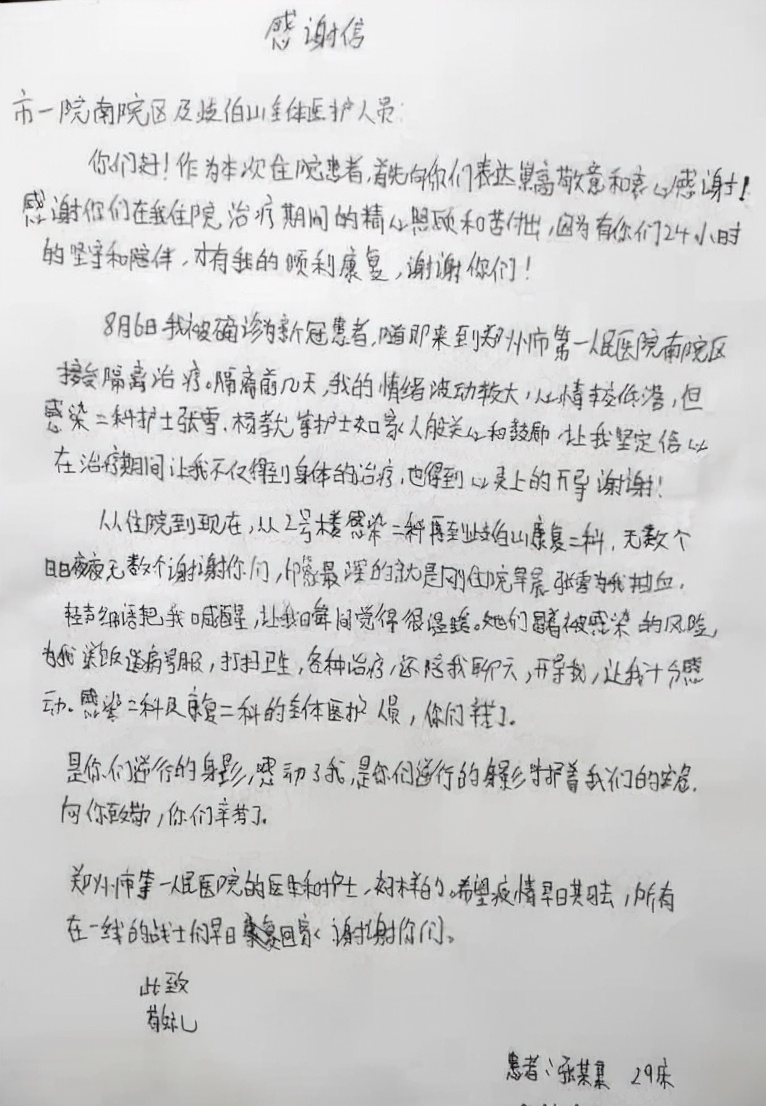 感谢信
市一院南院区及歧伯山全体医护人员:
你们好!作为本次住院患者,首先向你们表达崇高敬意和衷心感谢!
感谢你们在我住院治疗期间的精心照顾和苦付出,因为有你们24小时
的坚守和陪伴,才有我的顺利康复,谢谢你们!
8月6日我被确诊为新冠患者,随即来到郑州市第一人民医院南院区
接受隔离治疗。隔离前几天,我的情绪波动较大,心情较低落,但
感染二科护士张雪.杨孝允等护士如家人般关心和鼓励,让我坚定信心
在治疗期间让我不仅得到身体的治疗,也得到心灵上的开导谢谢!
从住院到现在,从2号楼感染二科再到歧伯山康复二科,无数个
日日夜夜无数个谢谢你们,印象最深的就是刚住院早晨张雪为我抽血,
轻声细语把我喊醒,让我瞬间觉得很温暖。她们冒着被感染的风险,
为我送饭送病号服,打扫卫生,各种治疗,还陪我聊天,开导我,让我十分感
动。感染二科及康复二科的全体医护人员,你们辛苦了。
是你们逆行的身影,感动了我,是你们逆行的身影守护着我们的安危.
向你致敬,你们辛苦了。
郑州市第一人民医院的医生和护士,好样的。希望疫情早日其过去,所有
在一线的战士们早日回家 谢谢你们。
此致
敬礼
患者:张某某 29床